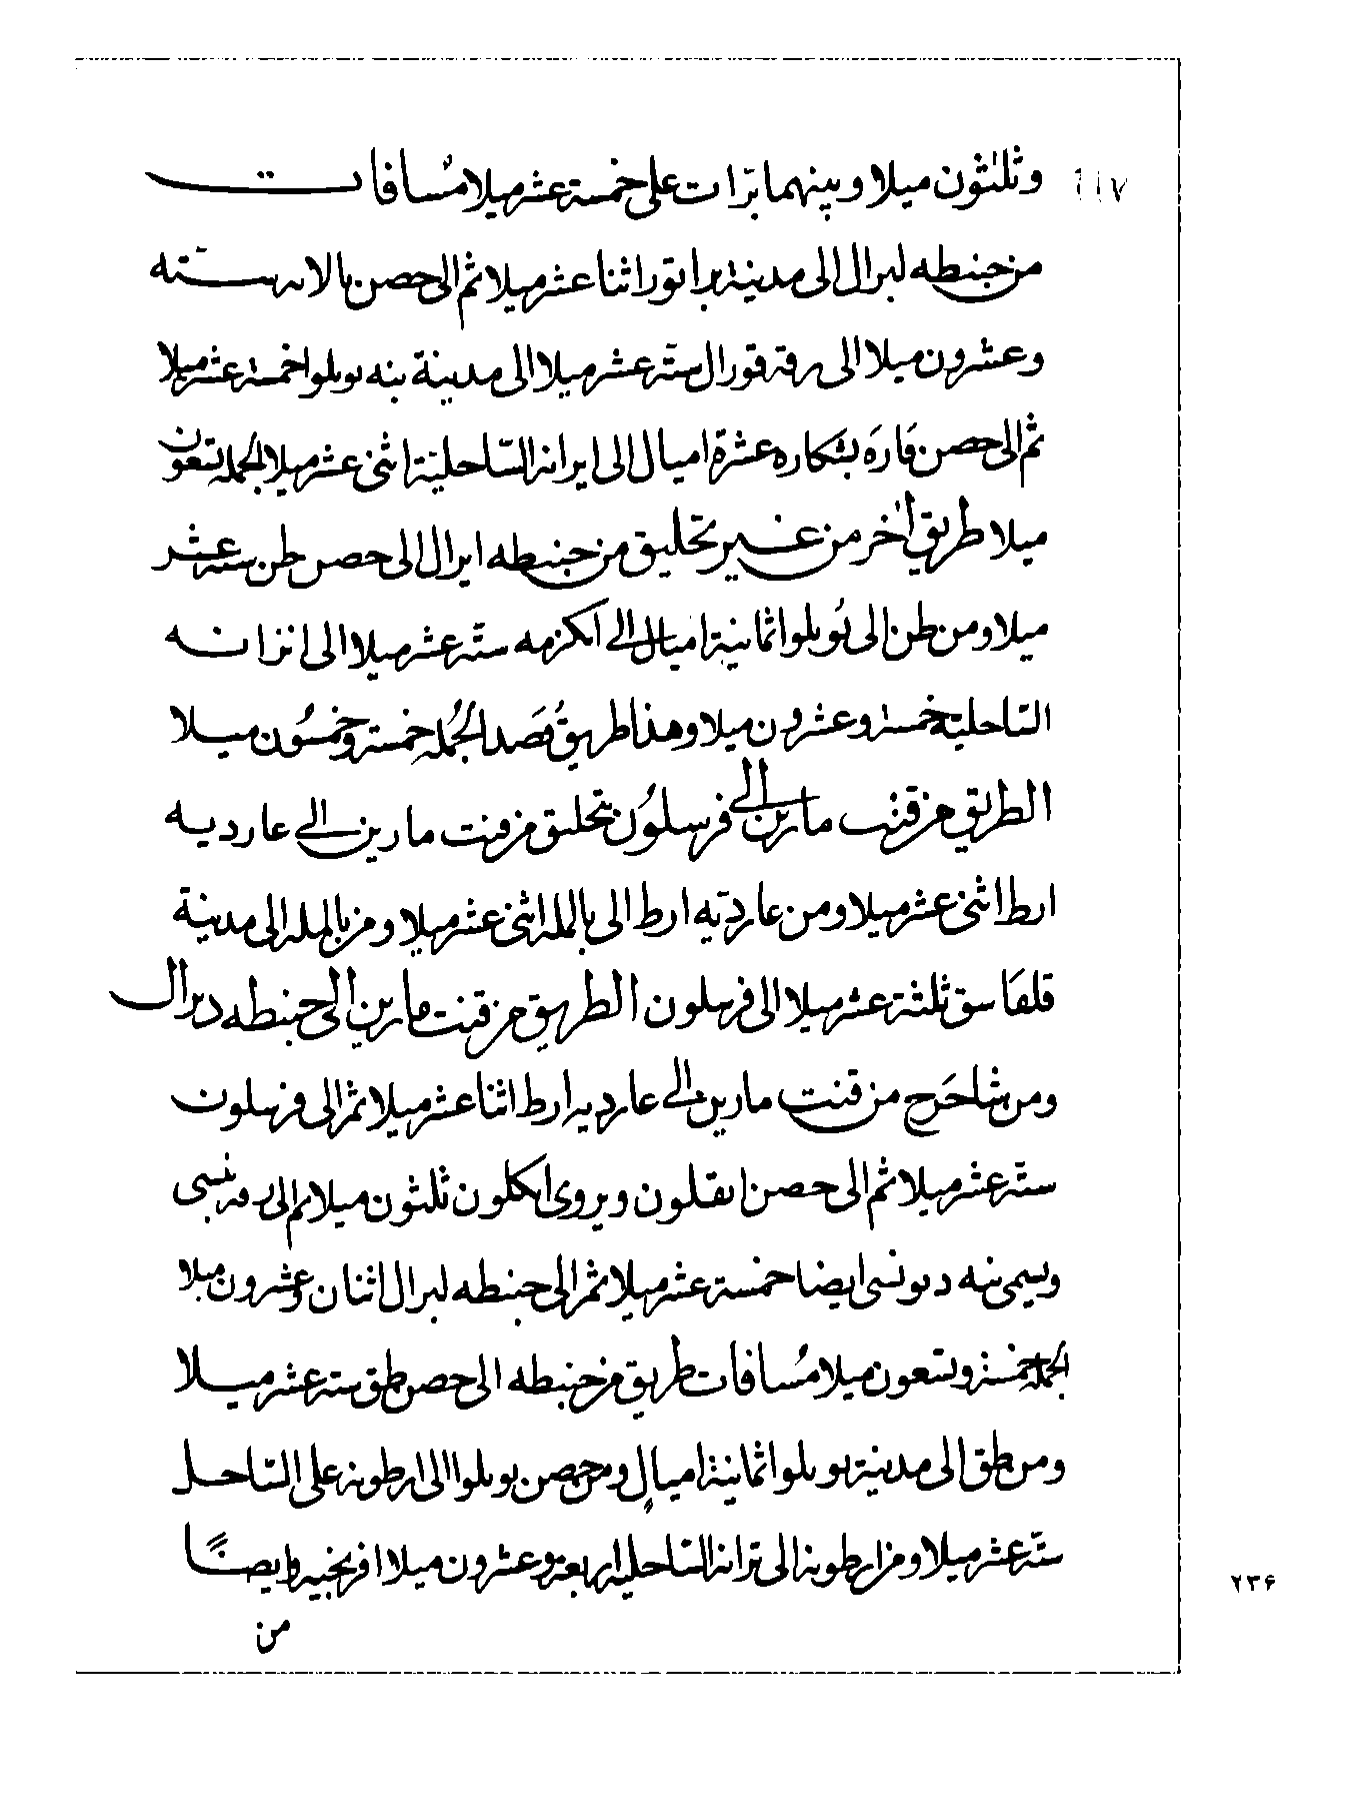 وثلثون ميلا وبينهما بترات على خمسة عشر ميلا مسافات
من جنبطه لبرال الى مدينة براتور اثنا عشر ميلا ثم الى حصن بالا ستة
وعشرون ميلا الى رقة قورال ستة عشر ميلا الى مدينة بنه بوبلوا خمسة عشر ميلا
ثم الى حصن قاره بشكاره عشرة اميال الى ايرانه الساحلية اثنى عشر ميلا الجملة تسعون
ميلا طريق اخر من غير تحليق من جنبطه ايرال الى حصن طن ستة عشر
ميلا ومن طن الى بوبلوا ثمانية اميال الى الكرمه ستة عشر ميلا الى انزانه
الساحلية خمسة وعشرون ميلا وهذا طريق قصد الجملة خمسة وخمسون ميلا
الطريق من قنت مارين الى فرسلون بتحليق من قنت مارين الى عارديه
ارط اثنى عشر ميلا ومن عارديه ارط الى بالمله اثنى عشر ميلا ومن بالمله الى مدينة
قلفاسق ثلثة عشر ميلا الى فرسلون الطريق من قنت مارين الى جنبطه دبرال
ومن شا خرج من قنت مارين الى عارديه ارط اثنا عشر ميلا ثم الى فرسلون
ستة عشر ميلا ثم الى حصن انقلون ويروى انكلون ثلثون ميلا ثم الى رقه نبسى
ويسمى بنه دبونسى ايضا خمسة عشر ميلا ثم الى جنبطه لبرال اثنان وعشرون ميلا
الجملة خمسة وتسعون ميلا مسافات طريق من جنبطه الى حصن طق ستة عشر ميلا
ومن طق الى مدينة بوبلوا ثمانية اميال ومن حصن بوبلوا الى ارطونه على الساحل
ستة عشر ميلا ومن ارطونه الى ترانه الساحلية اربعة وعشرون ميلا افرنجيه وايضا
من
٢٣۶